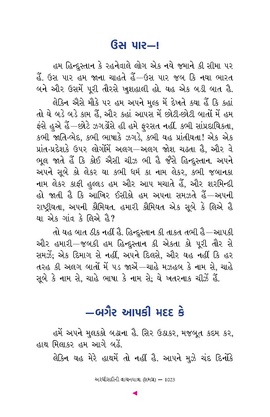 ઉસ પાર—!
હમ હિન્દુસ્તાન કે રહનેવાલે લોગ એક નયે જમાને કી સીમા પર
હૈં. ઉસ પાર હમ જાના ચાહતે હૈં—ઉસ પાર જબ કિ નયા ભારત
બને ઔર ઉસમેં પૂરી તૌરસે ખુશહાલી હો. યહ એક બડી બાત હૈ.
લેકિન ઐસે મૌકે પર હમ અપને મુલ્ક મેં દેખતે ક્યા હૈં કિ કહાં
તો યે બડે બડે કામ હૈં, ઔર કહાં આપસ મેં છોટી-છોટી બાતોં મેં હમ
ફંસે હુએ હૈં—છોટે ઝગડોંસે હી હમેં ફુરસત નહીં. કભી સાંપ્રદાયિકતા,
કભી જાતિ-ભેદ, કભી ભાષાકે ઝગડે, કભી યહ પ્રાંતીયતા! એક એક
પ્રાંત-પ્રદેશકે ઉપર લોગોંમેં અલગ—અલગ જોશ ચઢતા હૈ, ઔર વે
ભૂલ જાતે હૈં કિ કોઈ ઐસી ચીઝ ભી હૈ જૈસે હિન્દુસ્તાન. અપને
અપને સૂબે કો લેકર યા કભી ધર્મ કા નામ લેકર, કભી જબાનકા
નામ લેકર કાફી હુલ્લડ હમ ઔર આપ મચાતે હૈં, ઔર શરમિન્દી
હો જાતી હૈ કિ આખિર ઉંસીકો હમ અપના સમઝતે હૈં—અપની
રાષ્ટ્રીયતા, અપની કૌમિયત. હમારી કૌમિયત એક સૂબે કે લિએ હૈ
યા એક ગાંવ કે લિએ હૈ?
તો યહ બાત ઠીક નહીં હૈ. હિન્દુસ્તાન કી તાકત તભી હૈ—આપકી
ઔર હમારી—જબકી હમ હિન્દુસ્તાન કી એકતા કો પૂરી તૌર સે
સમઝેં; એક દિમાગ સે નહીં, અપને દિલસે, ઔર યહ નહીં કિ હર
તરહ કી અલગ બાતોં મેં પડ જાએં—ચાહે મઝહબ કે નામ સે, ચાહે
સૂબે કે નામ સે, ચાહે ભાષા કે નામ સે; યે ખતરનાક ચીઝેં હૈં.
—બગૈર આપકી મદદ કે
હમેં અપને મુલકકો બઢાના હૈ. સિર ઉઠાકર, મજબૂત કદમ કર,
હાથ મિલાકર હમ આગે બઢેં.
લેકિન યહ મેરે હાથમેં તો નહીં હૈ. આપને મુઝે ચંદ દિનોંકે
અરધી સદીની વાચનયાત્રા (છૂટક) — 1023